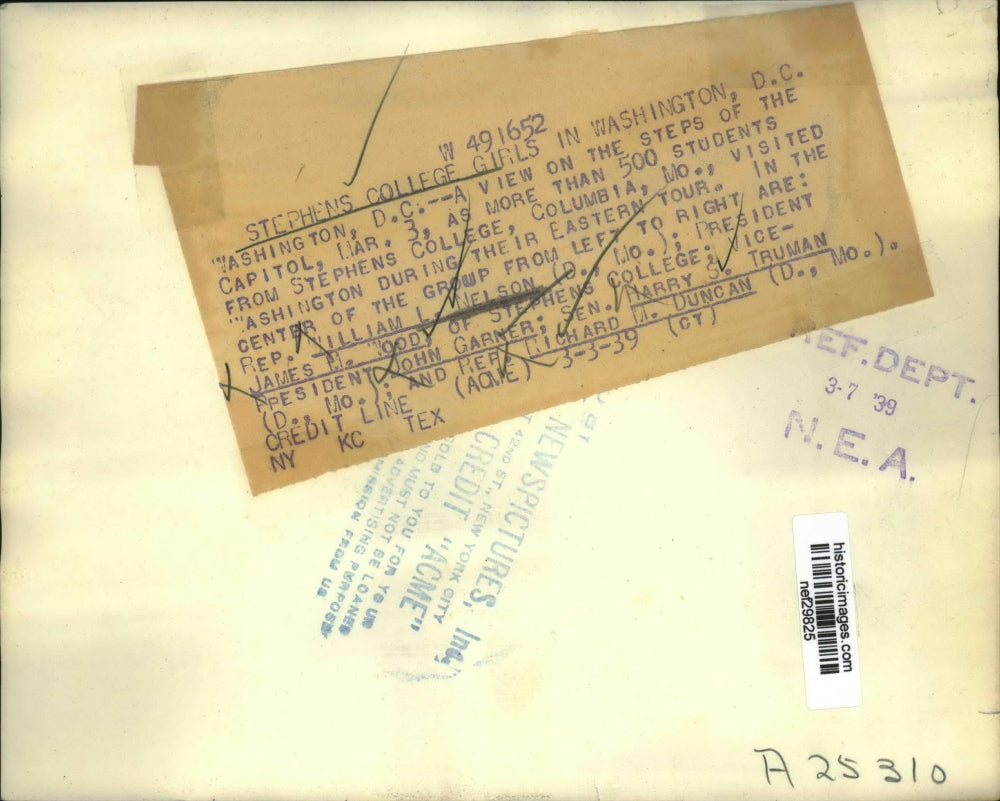 W 491652
STEPHENS COLLEGE GIRLS IN WASHINGTON, D.C.
WASHINGTON, D.C.--A VIEW ON THE STEPS OF THE
CAPITOL, MAR. 3, AS MORE THAN 500 STUDENTS
FROM STEPHENS COLLEGE, COLUMBIA, MO., VISITED
WASHINGTON DURING THEIR EASTERN TOUR. IN THE
CENTER OF THE GROUP FROM LEFT TO RIGHT ARE:
REP. WILLIAM L. NELSON (D., MO.); PRESIDENT
JAMES M. WOOD OF STEPHENS COLLEGE; VICE-
PRESIDENT JOHN GARNER; SEN. HARRY S. TRUMAN
(D., MO.); AND REP. RICHARD M. DUNCAN (D., MO.).
CREDIT LINE (ACME) 3-3-39 (CT)
NY KC TEX
REF. DEPT.
3-7 '39
N.E.A.
NEWSPICTURES, Inc.
42ND ST., NEW YORK CITY
CREDIT "ACME"
SOLD TO YOU FOR YOUR
AND MUST NOT BE LOANED
ADVERTISING PURPOSES
FROM US
historicimages.com
nef29825
A 25310